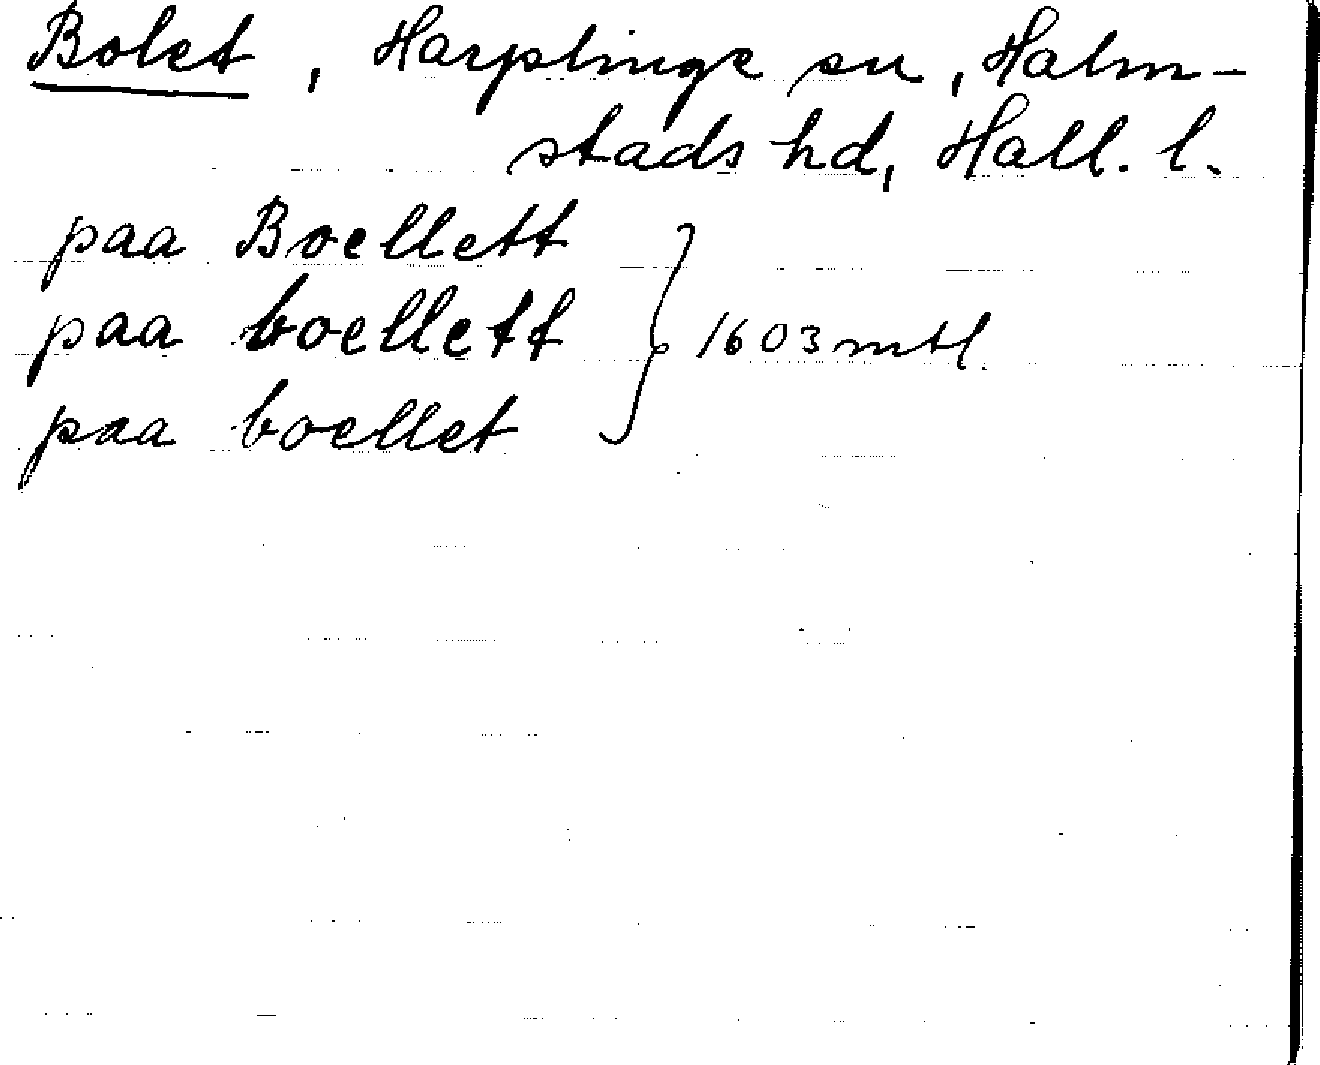 Bolet, Harplinge sn, Halm-
stads hd, Hall. l.
paa Boellett
paa boellett } 1603 mtl.
paa boellet